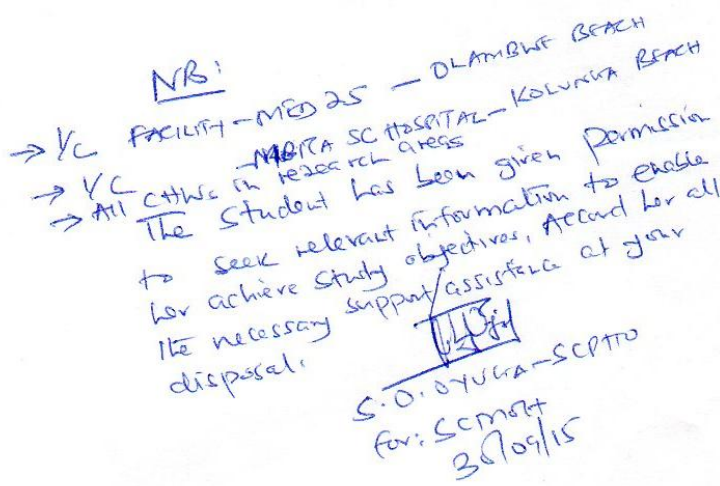 NB:
→ I/C FACILITY - MED 25 - OLAMBWE BEACH
→ I/C - MBITA SC HOSPITAL - KOLUNGA BEACH
→ All CHWs in research areas
The student has been given permission
to seek relevant information to enable
her achieve study objectives, Accord her all
the necessary support/assistance at your
disposal.
S.O. OYUGA - SCPHO
for: SCMOH
30/09/15